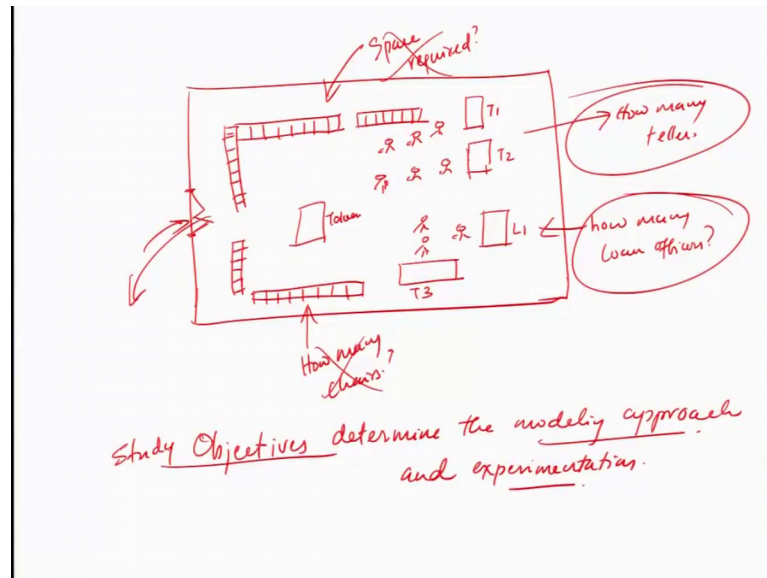 Space
required?
T1
How many
tellers
T2
Token
L1
how many
loan officers?
T3
How many
chairs?
Study Objectives determine the modeling approach
and experimentation.